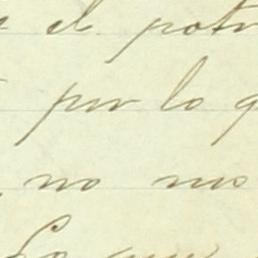 el potr
por lo q
no nos
Lo que